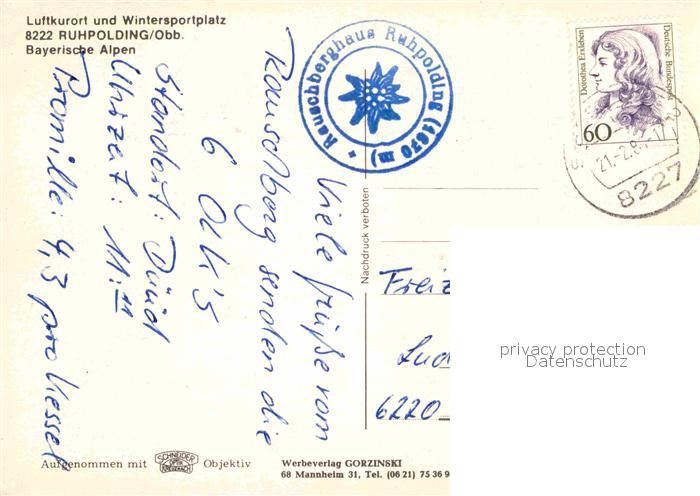 Luftkurort und Wintersportplatz
8222 RUHPOLDING/Obb.
Bayerische Alpen
Viele Grüße vom
Rauschberg senden die
6 OLK'S
Standort: Düüd
Uhrzeit: 11:11
Promille: 4,3 pro Kessel
Rauschberghaus Ruhpolding (1670 m)
Dorothea Erxleben
Deutsche Bundespost
60
21.-2.8
8227
Nachdruck verboten
Freiz
Lud
6220
privacy protection
Datenschutz
Aufgenommen mit SCHNEIDER OPTIK KREUZNACH Objektiv
Werbeverlag GORZINSKI
68 Mannheim 31, Tel. (06 21) 75 36 9